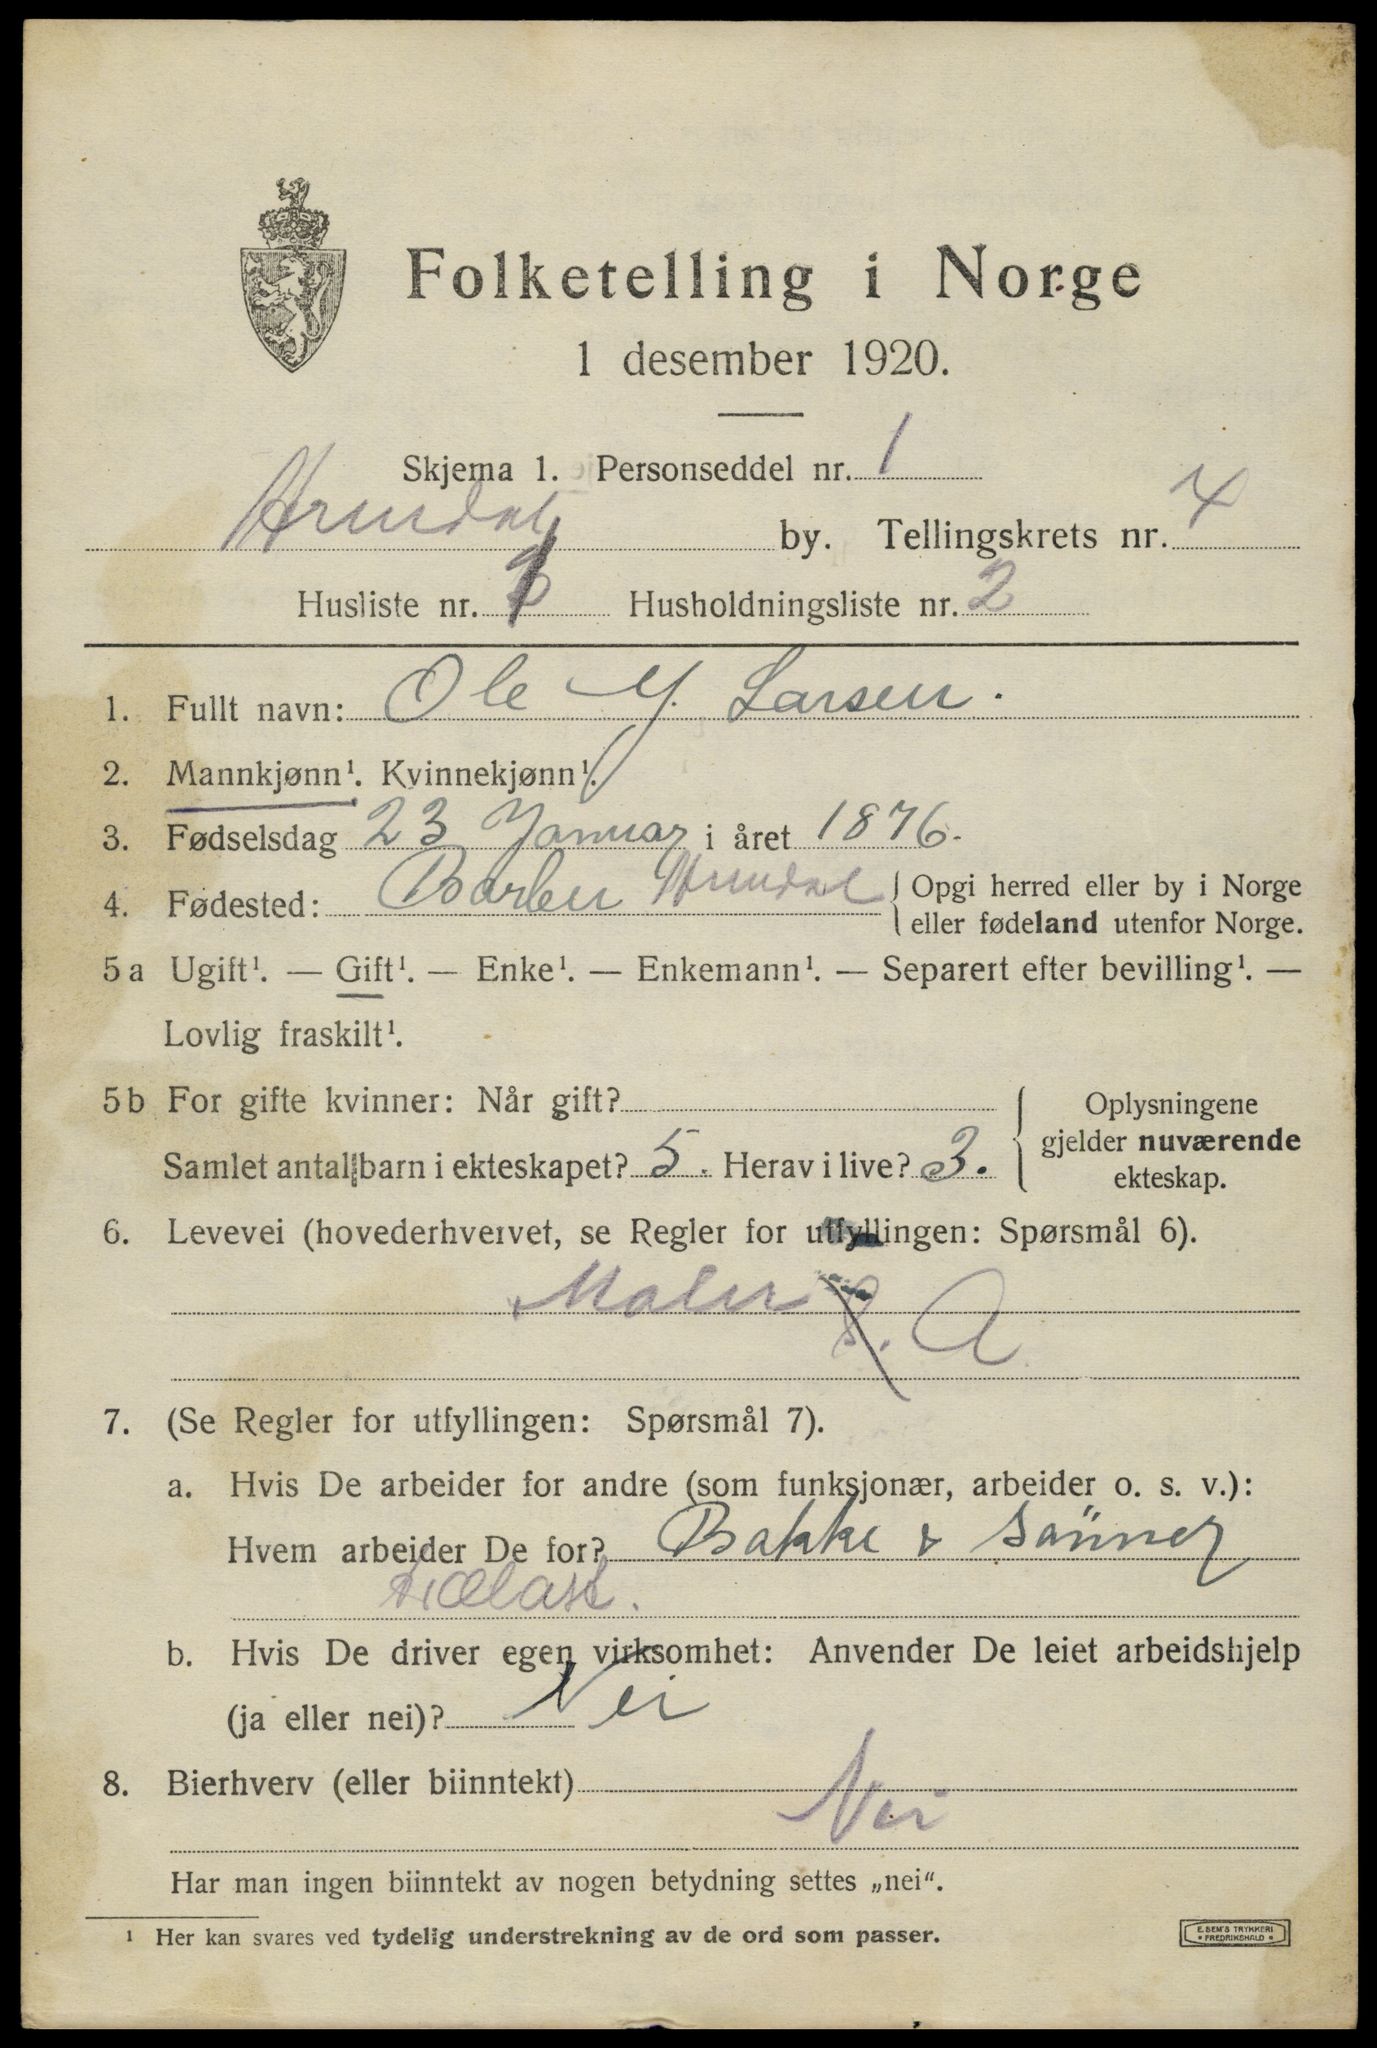 Folketelling i Norge
1 desember 1920.
Skjema 1. Personseddel nr. 1
Arendal by. Tellingskrets nr. 4
Husliste nr. Husholdningsliste nr. 2
1. Fullt navn: Ole Y. Larsen.
2. Mannkjønn¹. Kvinnekjønn¹.
3. Fødselsdag 23 Januar i året 1876.
4. Fødested: Barbu Arendal { Opgi herred eller by i Norge
eller fødeland utenfor Norge.
5a Ugift¹. — Gift¹. — Enke¹. — Enkemann¹. — Separert efter bevilling¹. —
Lovlig fraskilt¹.
5b For gifte kvinner: Når gift?
Samlet antal barn i ekteskapet? 5. Herav i live? 3.
{ Oplysningene
gjelder nuværende
ekteskap.
6. Levevei (hovederhvervet, se Regler for utfyllingen: Spørsmål 6).
Maler A
7. (Se Regler for utfyllingen: Spørsmål 7).
a. Hvis De arbeider for andre (som funksjonær, arbeider o. s. v.):
Hvem arbeider De for? Bakke & Sønner
b. Hvis De driver egen virksomhet: Anvender De leiet arbeidshjelp
(ja eller nei)? Nei
8. Bierhverv (eller biinntekt)
Nei
Har man ingen biinntekt av nogen betydning settes „nei“.
¹ Her kan svares ved tydelig understrekning av de ord som passer.
E. SEM'S TRYKKERI
FREDRIKSHALD